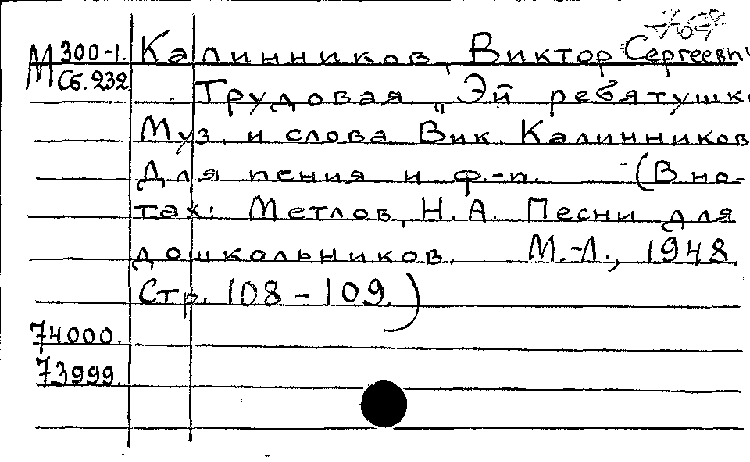 М 300-1. Калинников, Виктор Сергеевич
Сб. 232 Трудовая „Эй ребятушк
Муз. и слова Вик. Калинников
Для пения и ф.-п. (В но-
тах: Метлов, Н. А. Песни для
дошкольников. М.-Л., 1948.
Стр. 108-109.)
74000.
73999.